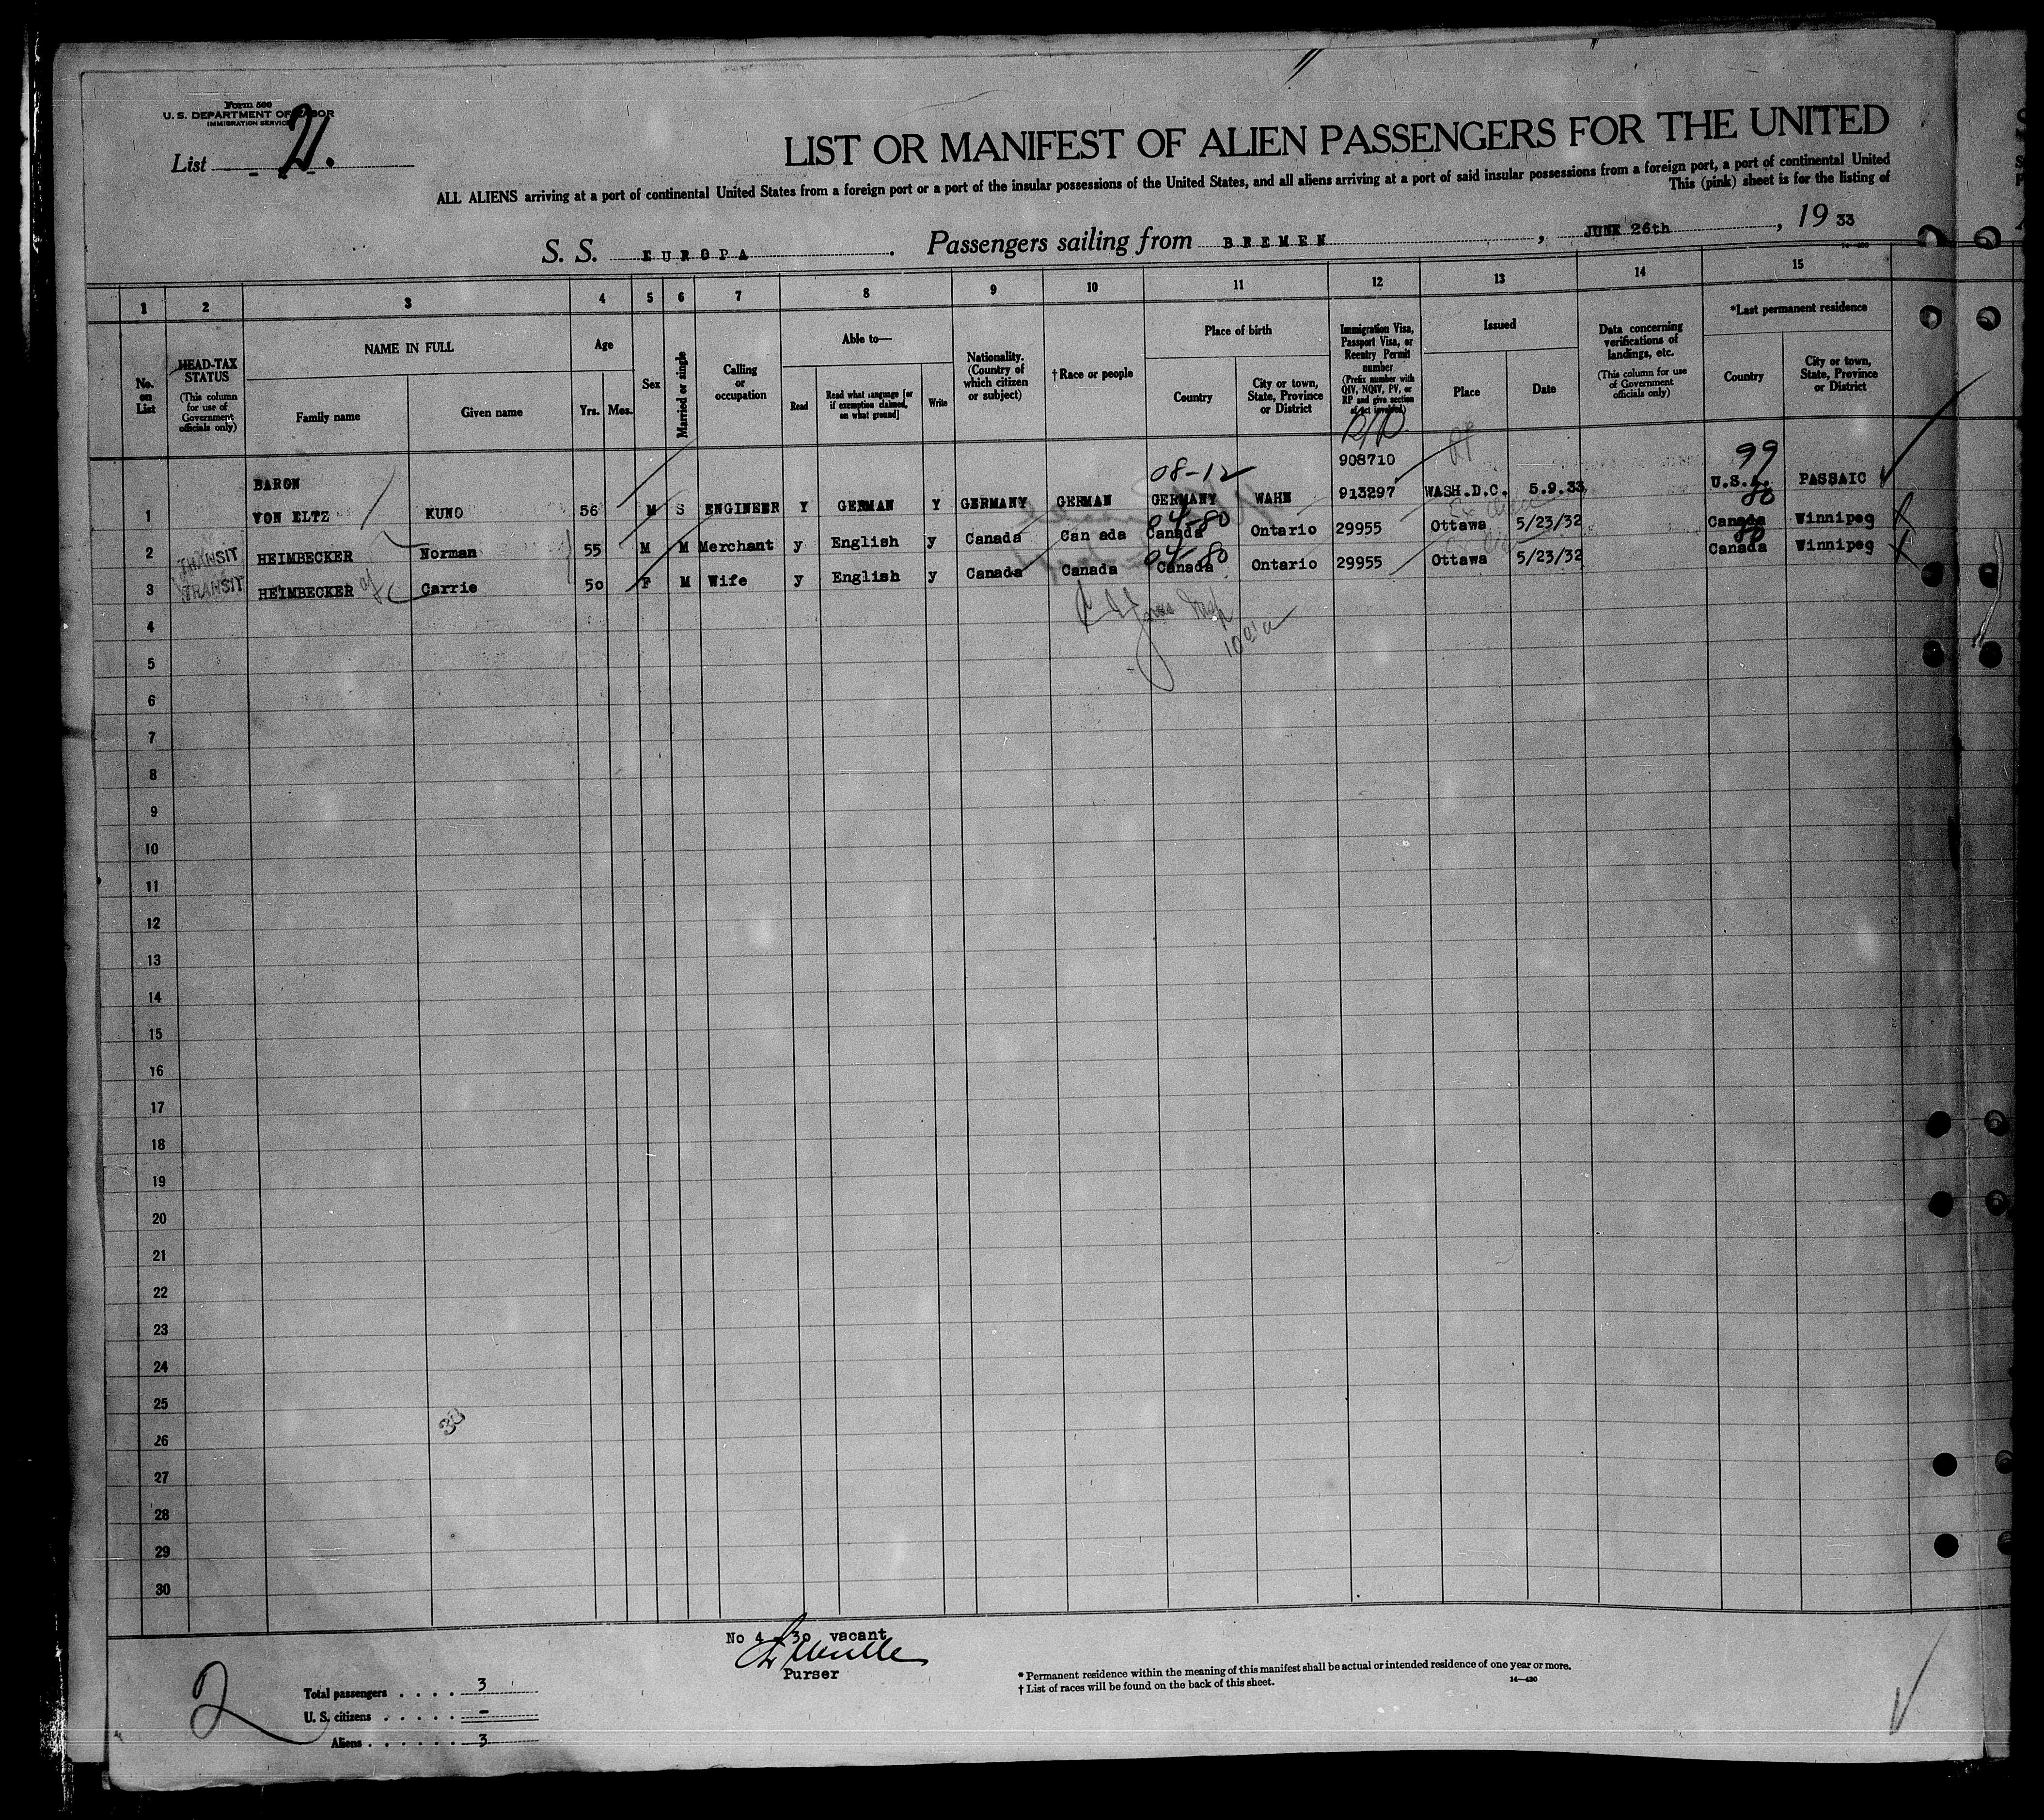 Form 500
U. S. DEPARTMENT OF LABOR
IMMIGRATION SERVICE
List 21.
LIST OR MANIFEST OF ALIEN PASSENGERS FOR THE UNITED
ALL ALIENS arriving at a port of continental United States from a foreign port or a port of the insular possessions of the United States, and all aliens arriving at a port of said insular possessions from a foreign port, a port of continental United
This (pink) sheet is for the listing of
S. S. EUROPA. Passengers sailing from BREMEN, JUNE 26th, 19 33
1 2 3 4 5 6 7 8 9 10 11 12 13 14 15
No. on List
HEAD-TAX STATUS
(This column for use of Government officials only)
NAME IN FULL
Family name
Given name
Age
Yrs. Mos.
Sex
Married or single
Calling or occupation
Able to—
Read
Read what language [or if exemption claimed, on what ground]
Write
Nationality. (Country of which citizen or subject)
†Race or people
Place of birth
Country
City or town, State, Province or District
Immigration Visa, Passport Visa, or Reentry Permit number
(Prefix number with QIV, NQIV, PV, or RP and give section of Act involved)
Issued
Place
Date
Data concerning verifications of landings, etc.
(This column for use of Government officials only)
*Last permanent residence
Country
City or town, State, Province or District
R/P
908710
BARON 08-12 99
1 VON ELTZ KUNO 56 M S ENGINEER Y GERMAN Y GERMANY GERMAN GERMANY WAHN 913297 WASH.D.C. 5.9.33 U.S.A. PASSAIC
04-80 80
2 TRANSIT HEIMBECKER Norman 55 M M Merchant y English y Canada Can ada Canada Ontario 29955 Ottawa 5/23/32 Canada Winnipeg
04-80 80
3 TRANSIT HEIMBECKER Carrie 50 F M Wife y English y Canada Canada Canada Ontario 29955 Ottawa 5/23/32 Canada Winnipeg
4
5
6
7
8
9
10
11
12
13
14
15
16
17
18
19
20
21
22
23
24
25
30
26
27
28
29
30
No 4 - 30 vacant
Purser
2
Total passengers . . . . 3
U. S. citizens . . . . . -
Aliens . . . . . . 3
* Permanent residence within the meaning of this manifest shall be actual or intended residence of one year or more.
† List of races will be found on the back of this sheet.
14—430